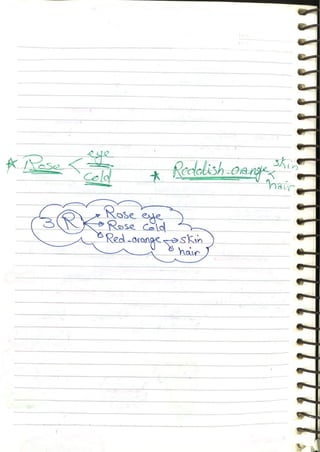 * Rose < eye
cold
* Reddish-orange < skin
hair
3 R
Rose eye
Rose cold
Red-orange → skin
hair